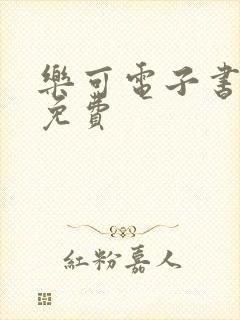 樂可電子書
免費
紅粉嘉人